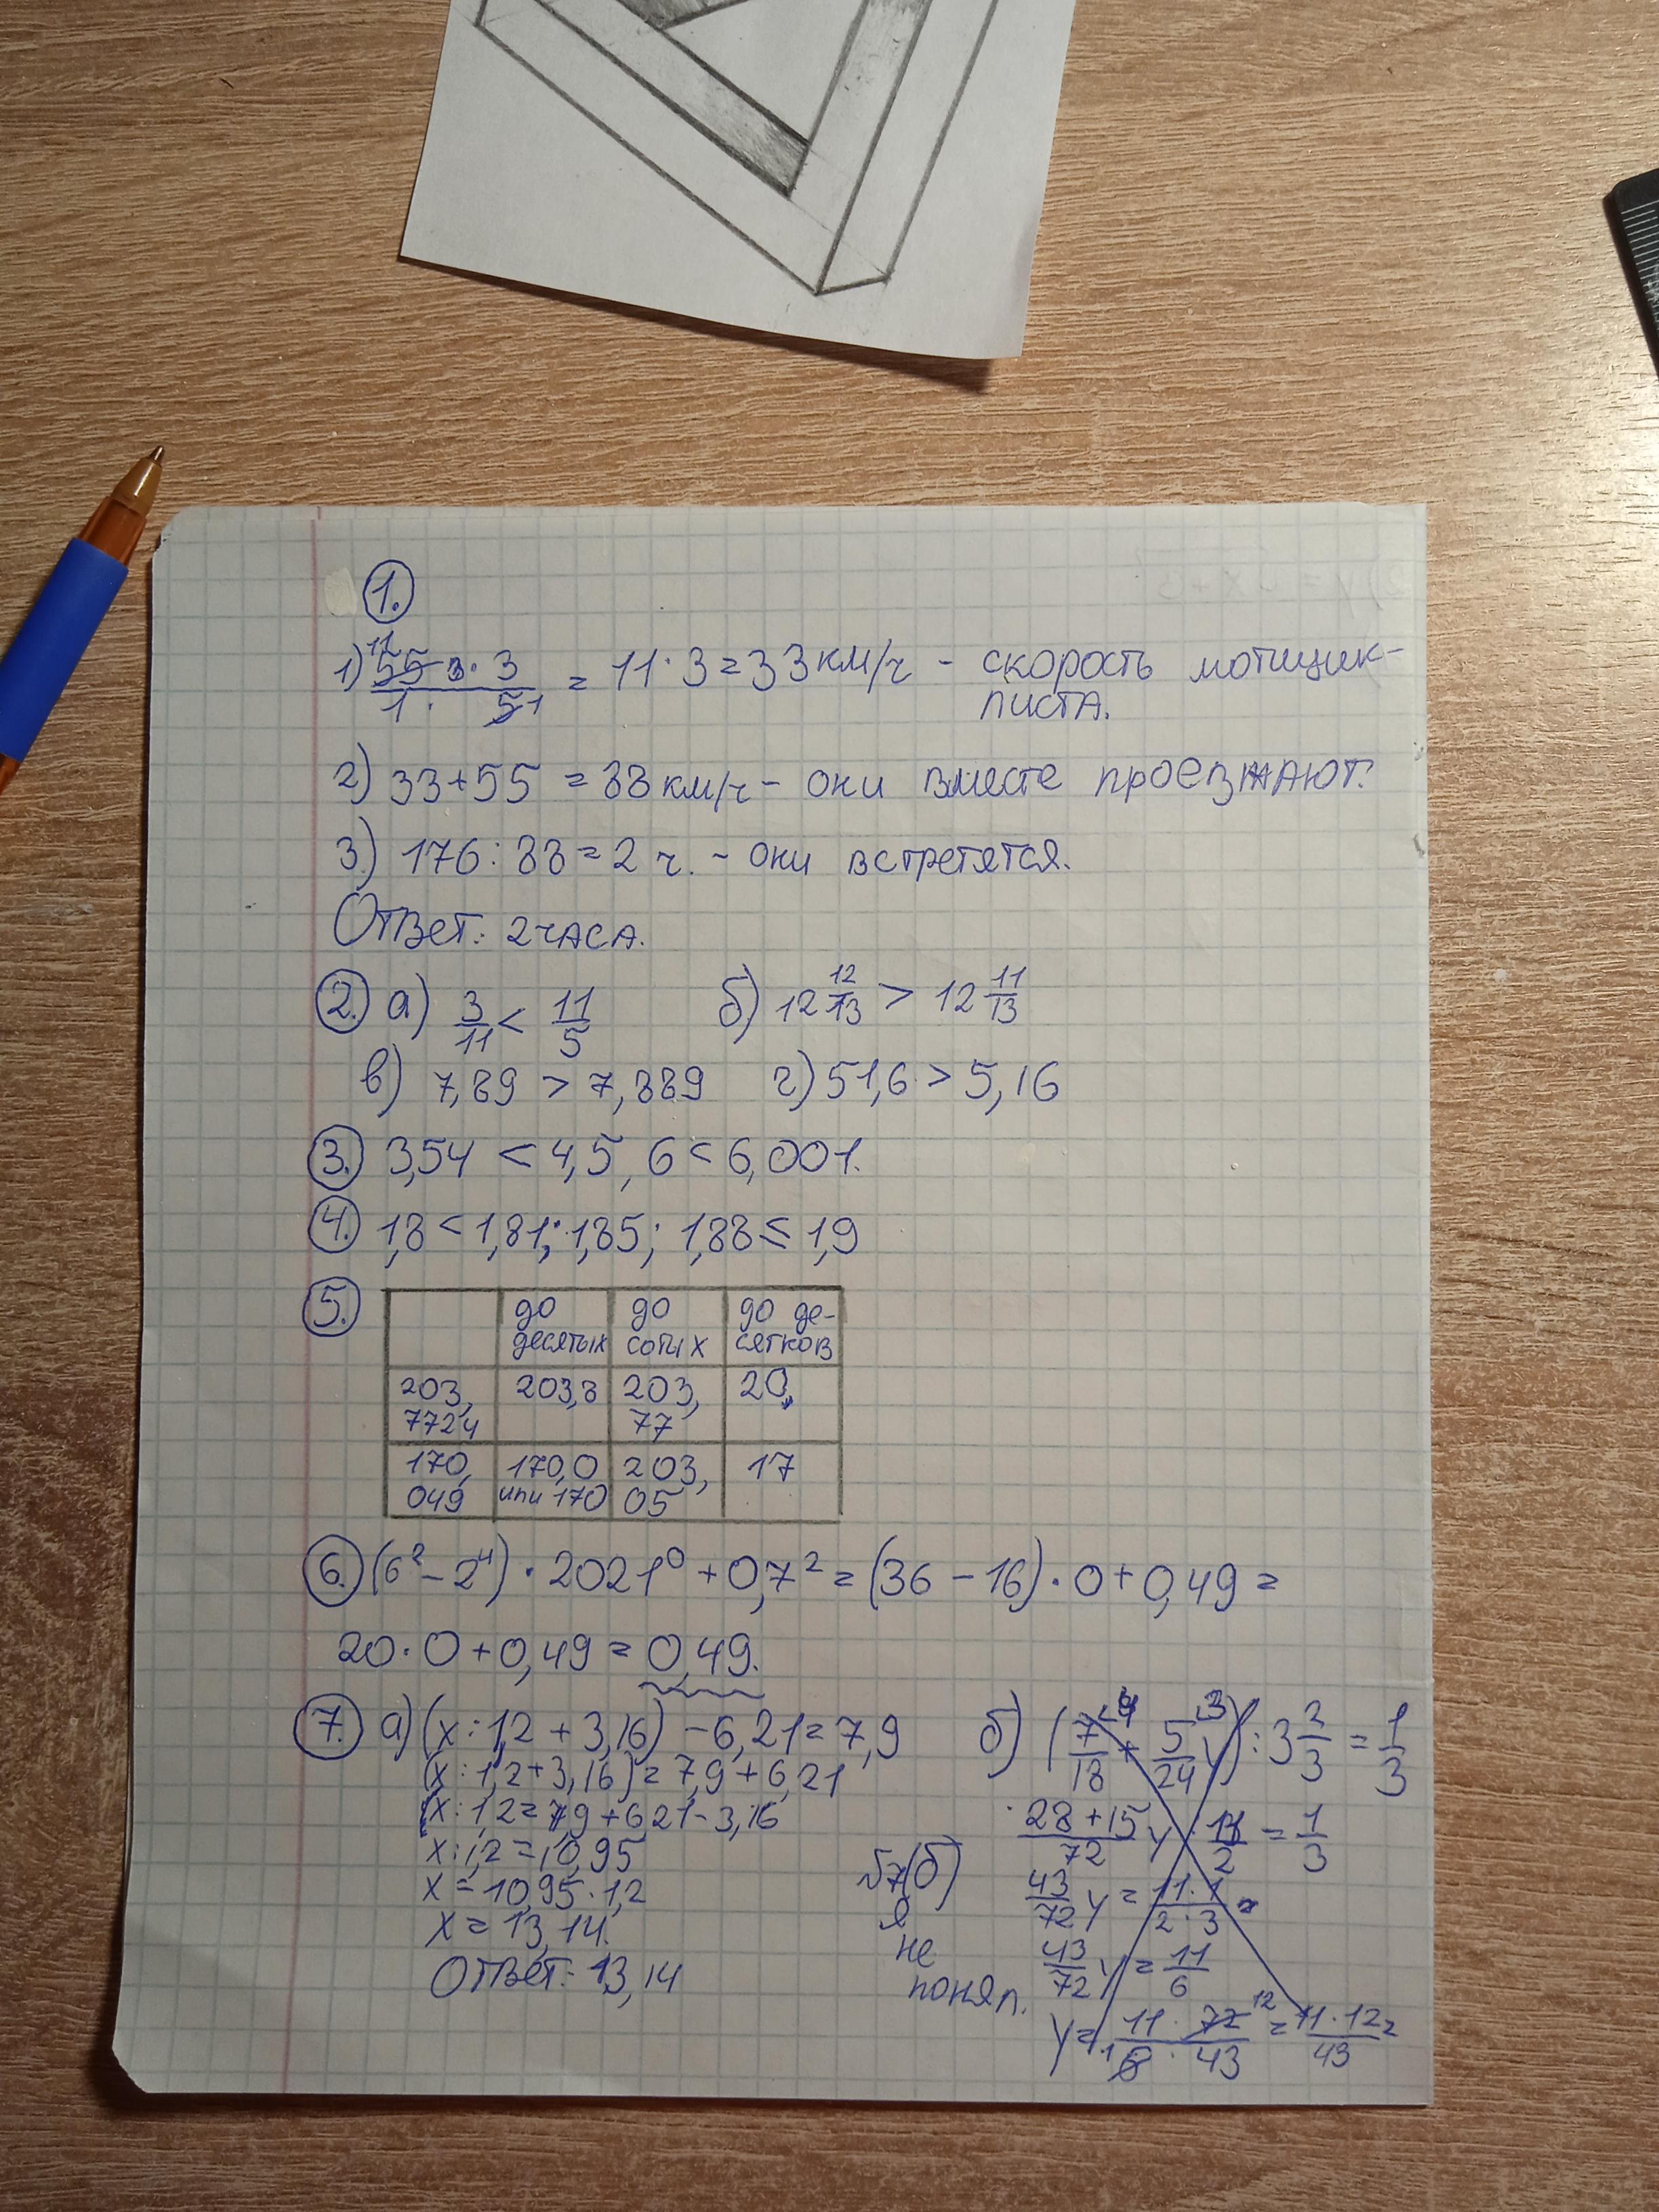 1.
1) 55 · 3 / 1 · 5 = 11 · 3 = 33 км/ч - скорость мотоцик-
листа.
2) 33+55 = 88 км/ч - они вместе проезжают.
3) 176 : 88 = 2 ч. - они встретятся.
Ответ: 2 часа.
2. а) 3/11 < 11/5 б) 12 12/13 > 12 11/13
в) 7,89 > 7,889 г) 51,6 > 5,16
3. 3,54 < 4,5, 6 < 6,001.
4. 1,8 < 1,81; 1,85; 1,88 ≤ 1,9
5.
до до до де-
десятых сотых сятков
203, 203,8 203, 20
7724 77
170, 170,0 203, 17
049 или 170 05
6. (6² - 2⁴) · 2021⁰ + 0,7² = (36 - 16) · 0 + 0,49 =
20 · 0 + 0,49 = 0,49.
7. а) (x : 1,2 + 3,16) - 6,21 = 7,9
(x : 1,2 + 3,16) = 7,9 + 6,21
x : 1,2 = 7,9 + 6,21 - 3,16
x : 1,2 = 10,95
x = 10,95 · 1,2
x = 13,14.
Ответ: 13,14
б) (7/18 + 5/24 y) : 3 2/3 = 1/3
28 + 15 / 72 y : 11/2 = 1/3
43/72 y = 11 · 1 / 2 · 3 =
43/72 y = 11/6
y = 11 · 72 / 6 · 43 = 11 · 12 / 43 =
№7(б)
я
не
понял.